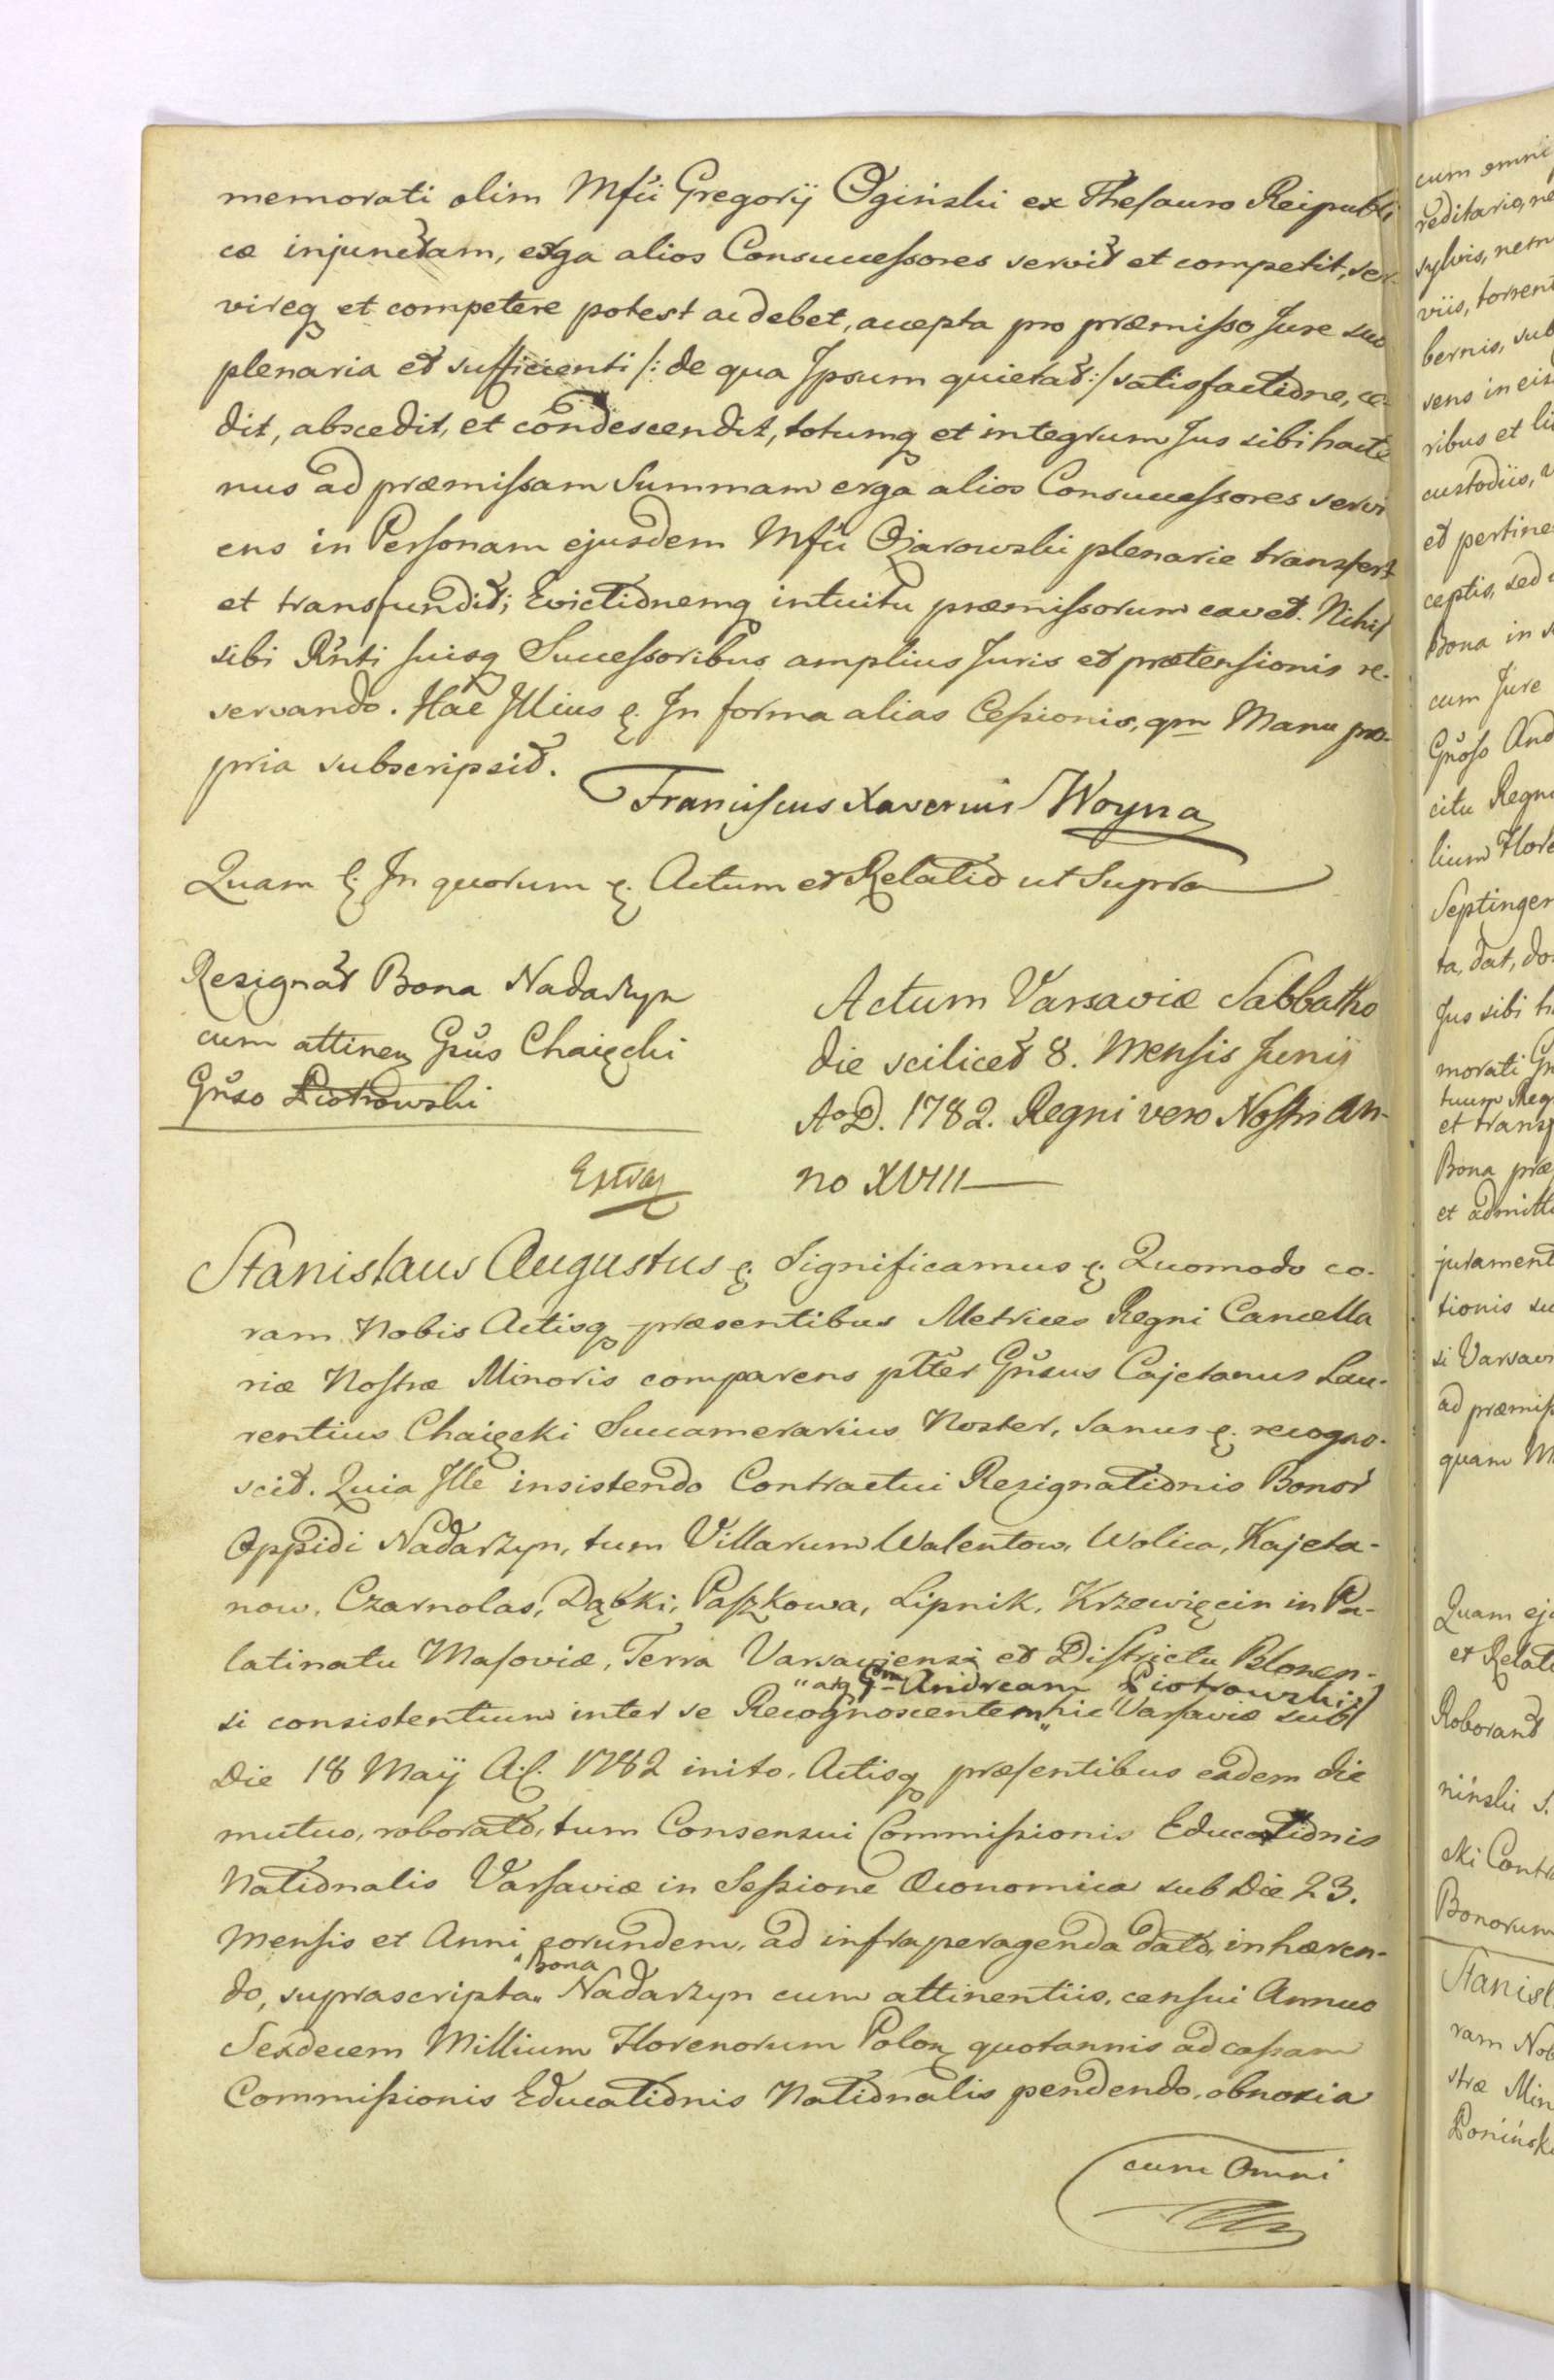 memorati olim Mfci Gregorij Ogiński ex Thesauro Reipubli
cæ injunctam, erga alios Consuccessores servit et competit, ser-
vireq et competere potest ac debet, accepta pro præmisso Jure suo
plenaria et sufficienti /: de qua Ipsum quietat :/ satisfactione, ce-
dit, abscedit, et condescendit, totumq et integrum Jus sibi hacte
nus ad præmissam Summam erga alios Consuccessores servi
ens in Personam ejusdem Mfci Ożarowski plenarie transfert
et transfundit; Evictionemq intuitu præmissorum cavet. Nihil
sibi Rnti suisq Successoribus amplius Juris et prætensionis re-
servando. Hac Illius &. In forma alias Cessionis, qm Manu pro-
pria subscripsit.
Franciscus Xaverius Woyna
Quam &. In quorum &. Actum et Relatio ut Supra
Resignat Bona Nadarzyn
cum attinen Gnsus Chaięcki
Gnso Piotrowski
Actum Varsaviæ Sabbatho
die scilicet 8. Mensis Junij
AoD. 1782. Regni vero Nostri An-
no XVIII
Extrad
Stanislaus Augustus &. Significamus &. Quomodo co-
ram Nobis Actisq præsentibus Metrices Regni Cancella
riæ Nostræ Minoris comparens ptter Gnsus Cajetanus Lau-
rentius Chaięcki Succamerarius Noster, sanus &. recogno-
scit. Quia Ille insistendo Contractui Resignationis Bonor
Oppidi Nadarzyn, tum Villarum Walentow, Wolica, Kajeta-
now, Czarnolas, Dąbki, Paszkowa, Lipnik, Krzewięcin in Pa-
latinatu Masoviæ, Terra Varsaviensi et Districtu Blonen-
"atq Gm Andream Piotrowski
si consistentium inter se Recognoscentem" hic Varsaviæ sub
Die 18 Maij A.C. 1782 inito, Actisq præsentibus eadem die
mutuo, roborato, tum Consensui Commissionis Educationis
Nationalis Varsaviæ in Sessione Œconomica sub Die 23.
Mensis et Anni eorundem, ad infra peragenda dato, inhæren-
"Bona
do, suprascripta" Nadarzyn cum attinentiis, censui Annuo
Sexdecem Millium Florenorum Polon quotannis ad cassam
Commissionis Educationis Nationalis pendendo, obnoxia
cum Omni
cum omni
reditario, ne
sylvis, nem
viis, torrent
bernis, sub
sens in eis
ribus et li
custodiis,
et pertine
ceptis, sed
Bona in
cum Jure
Gnoso And
citu Regni
lium Flore
Septingen
ta, dat, do
Jus sibi h
morati Gn
tuum Reg
et transf
Bona præ
et admitt
jurament
tionis su
si Varsav
ad præmiss
quam M
Quam ej
et Relati
Roborant
niński S.
ski Contr
Bonorum
Stanisl
ram Nob
stræ Min
Poninsk